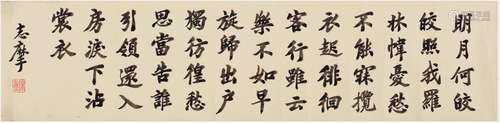 明月何皎
皎照我羅
牀幃憂愁
不能寐攬
衣起徘徊
客行雖云
樂不如早
旋歸出戶
獨彷徨愁
思當告誰
引領還入
房淚下沾
裳衣
志摩